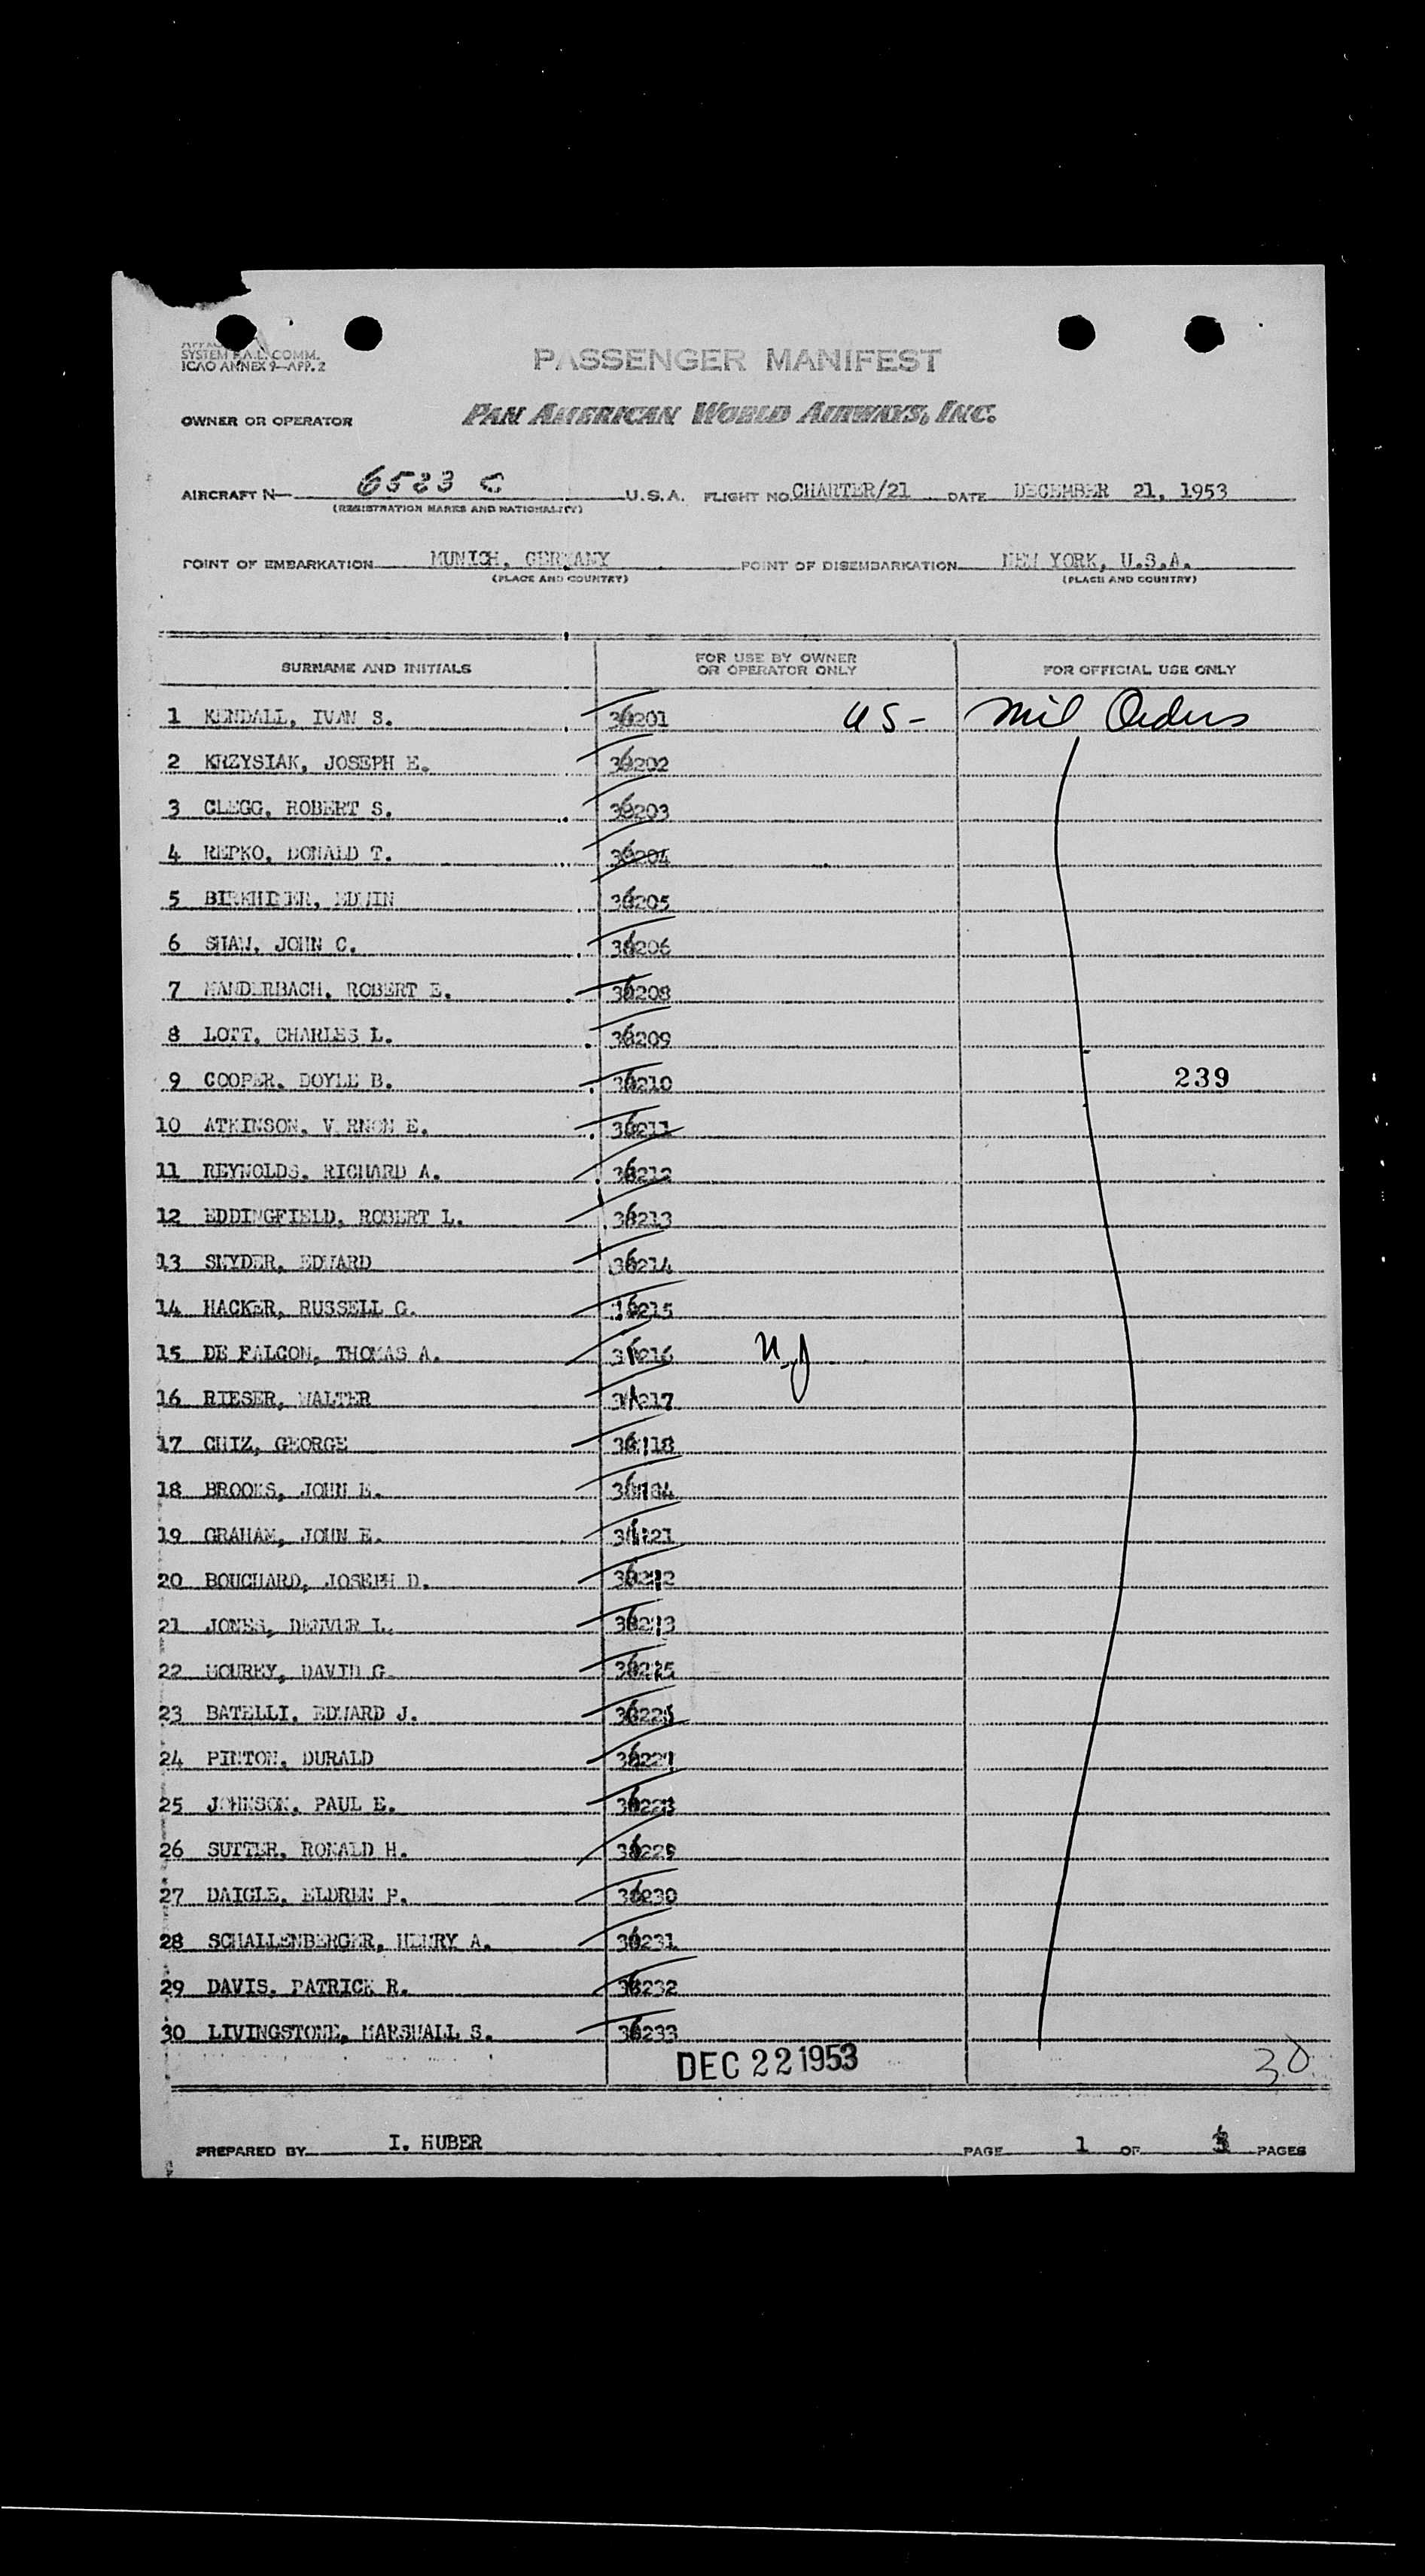 SYSTEM P.A.L. COMM.
ICAO ANNEX 9—APP. 2
PASSENGER MANIFEST
OWNER OR OPERATOR PAN AMERICAN WORLD AIRWAYS, INC.
AIRCRAFT N— 6523 C U.S.A. FLIGHT NO. CHARTER/21 DATE DECEMBER 21, 1953
(REGISTRATION MARKS AND NATIONALITY)
POINT OF EMBARKATION MUNICH, GERMANY POINT OF DISEMBARKATION NEW YORK, U.S.A.
(PLACE AND COUNTRY) (PLACE AND COUNTRY)
SURNAME AND INITIALS FOR USE BY OWNER OR OPERATOR ONLY FOR OFFICIAL USE ONLY
1 KENDALL, IVAN S. 36201 US- Mil Orders
2 KRZYSIAK, JOSEPH E. 36202
3 CLEGG, ROBERT S. 36203
4 REPKO, DONALD T. 36204
5 EDWIN 36205
6 SHAW, JOHN C. 36206
7 MANDERBACH, ROBERT E. 36208
8 LOTT, CHARLES L. 36209
9 COOPER, DOYLE B. 36210 239
10 ATKINSON, VERNON E. 36211
11 REYNOLDS, RICHARD A. 36212
12 EDDINGFIELD, ROBERT L. 36213
13 SNYDER, EDWARD 36214
14 HACKER, RUSSELL G. 36215
15 DE FALCON, THOMAS A. 36216 NJ
16 RIESER, WALTER 36217
17 CHIZ, GEORGE
18 BROOKS, JOHN E.
19 GRAHAM, JOHN E.
20 BOUCHARD, JOSEPH D.
21 JONES, DENVER L.
22 MOUREY, DAVID G.
23 BATELLI, EDWARD J.
24 PINTON, DURALD
25 JOHNSON, PAUL E. 36228
26 SUTTER, RONALD H. 36229
27 DAIGLE, ELDREN P. 36230
28 SCHALLENBERGER, HENRY A. 36231
29 DAVIS, PATRICK R. 36232
30 LIVINGSTONE, MARSHALL S. 36233
DEC 22 1953 30
PREPARED BY I. HUBER PAGE 1 OF PAGES